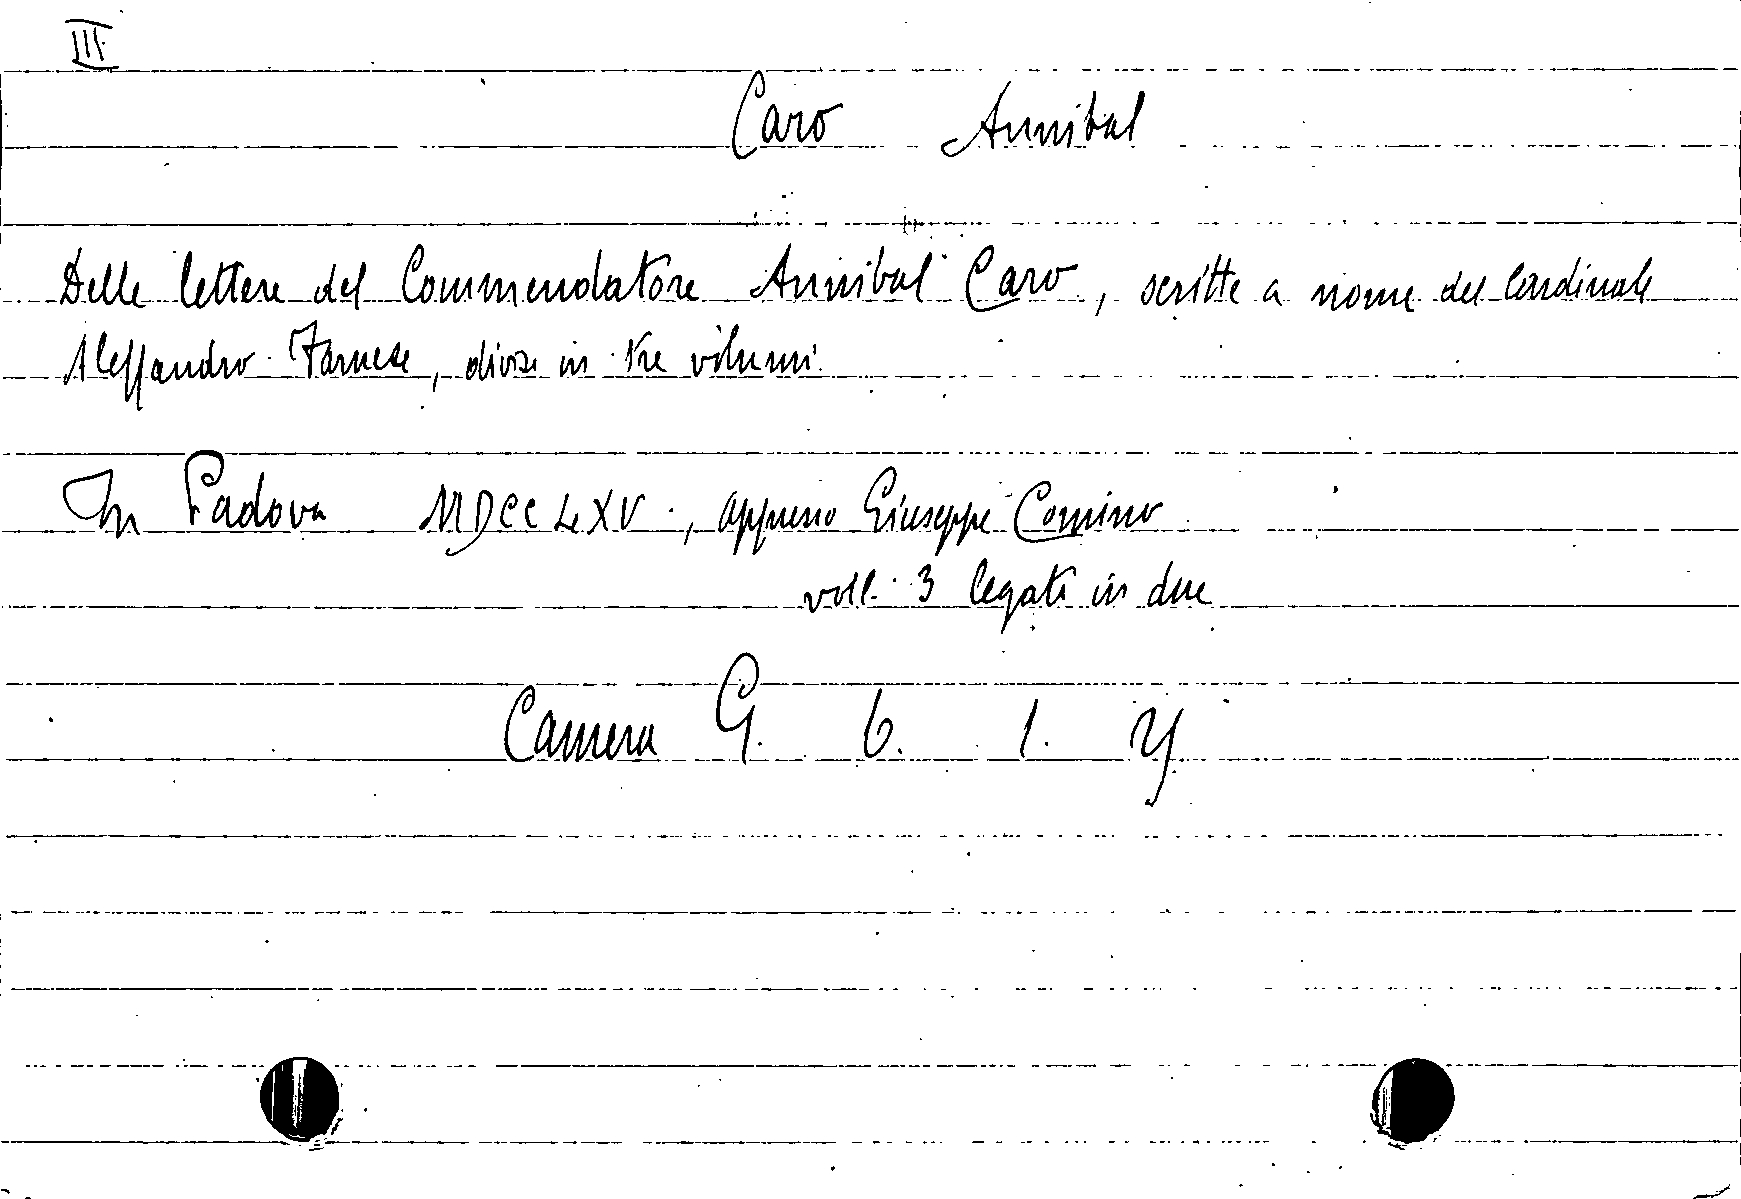 III
Caro Annibal
Delle lettere del Commendatore Annibal Caro, scritte a nome del Cardinale
Alessandro Farnese, divise in tre volumi.
In Padova MDCCLXV., appresso Giuseppe Comino
voll. 3 legati in due
Camera G. 6. 1. y